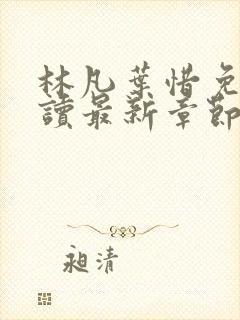 林凡葉惜免
讀最新章節
昶清